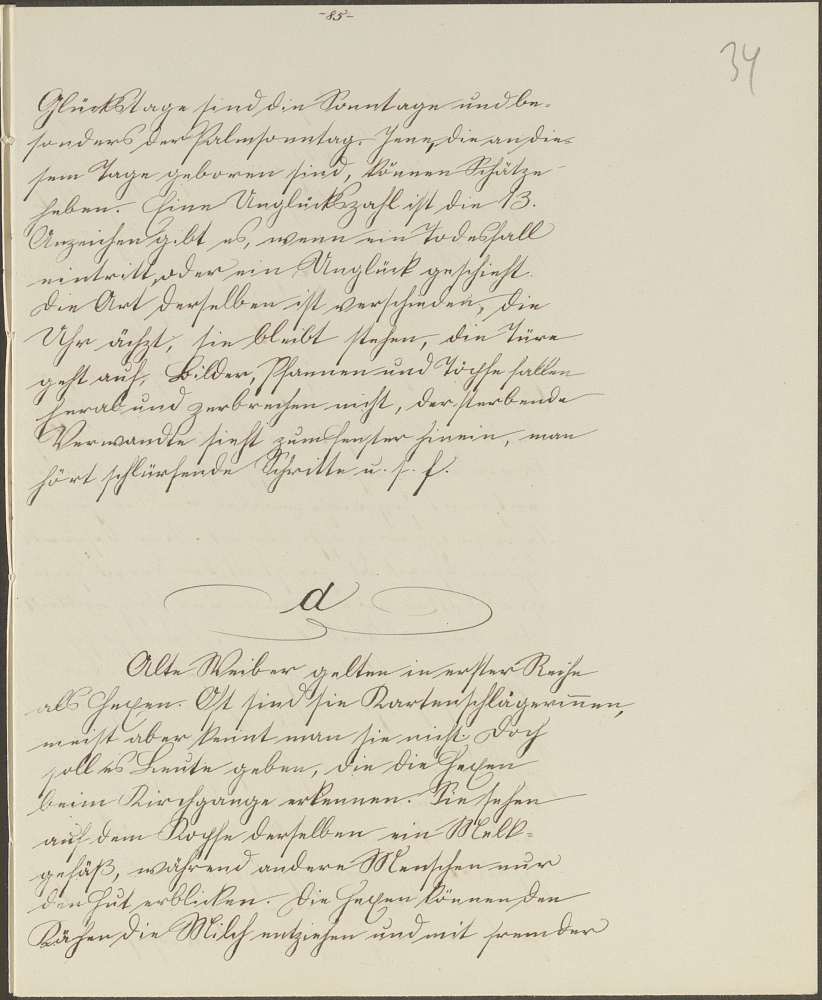 -85-
34
Glückstage sind die Sonntage und be-
sonders der Palmsonntag. Jene, die an die-
sem Tage geboren sind, können Schätze
heben. Eine Unglückszahl ist die 13.
Anzeichen gibt es, wenn ein Todesfall
eintritt, oder ein Unglück geschieht.
Die Art derselben ist verschieden, die
Uhr ächzt, sie bleibt stehen, die Türe
geht auf, Bilder, Pfannen und Töpfe fallen
herab und zerbrechen nicht, der sterbende
Verwandte sieht zum Fenster hinein, man
hört schlürfende Schritte u. s. f.
d
Alte Weiber gelten in erster Reihe
als Hexen. Oft sind sie Kartenschlägerinnen,
meist aber kennt man sie nicht. Doch
soll es Leute geben, die die Hexen
beim Kirchgange erkennen. Sie sehen
auf dem Kopfe derselben ein Melk-
gefäß, während andere Menschen nur
den Hut erblicken. Die Hexen können den
Kühen die Milch entziehen und mit fremder